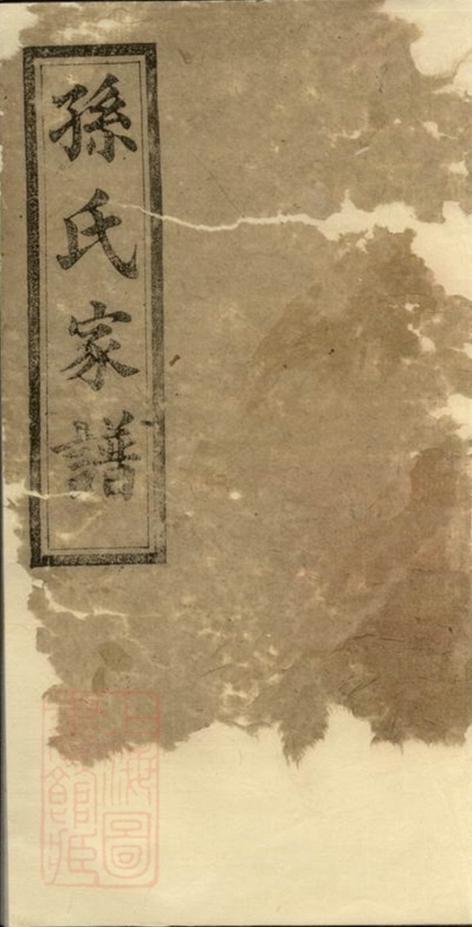 孫氏家譜
上海圖
書館藏